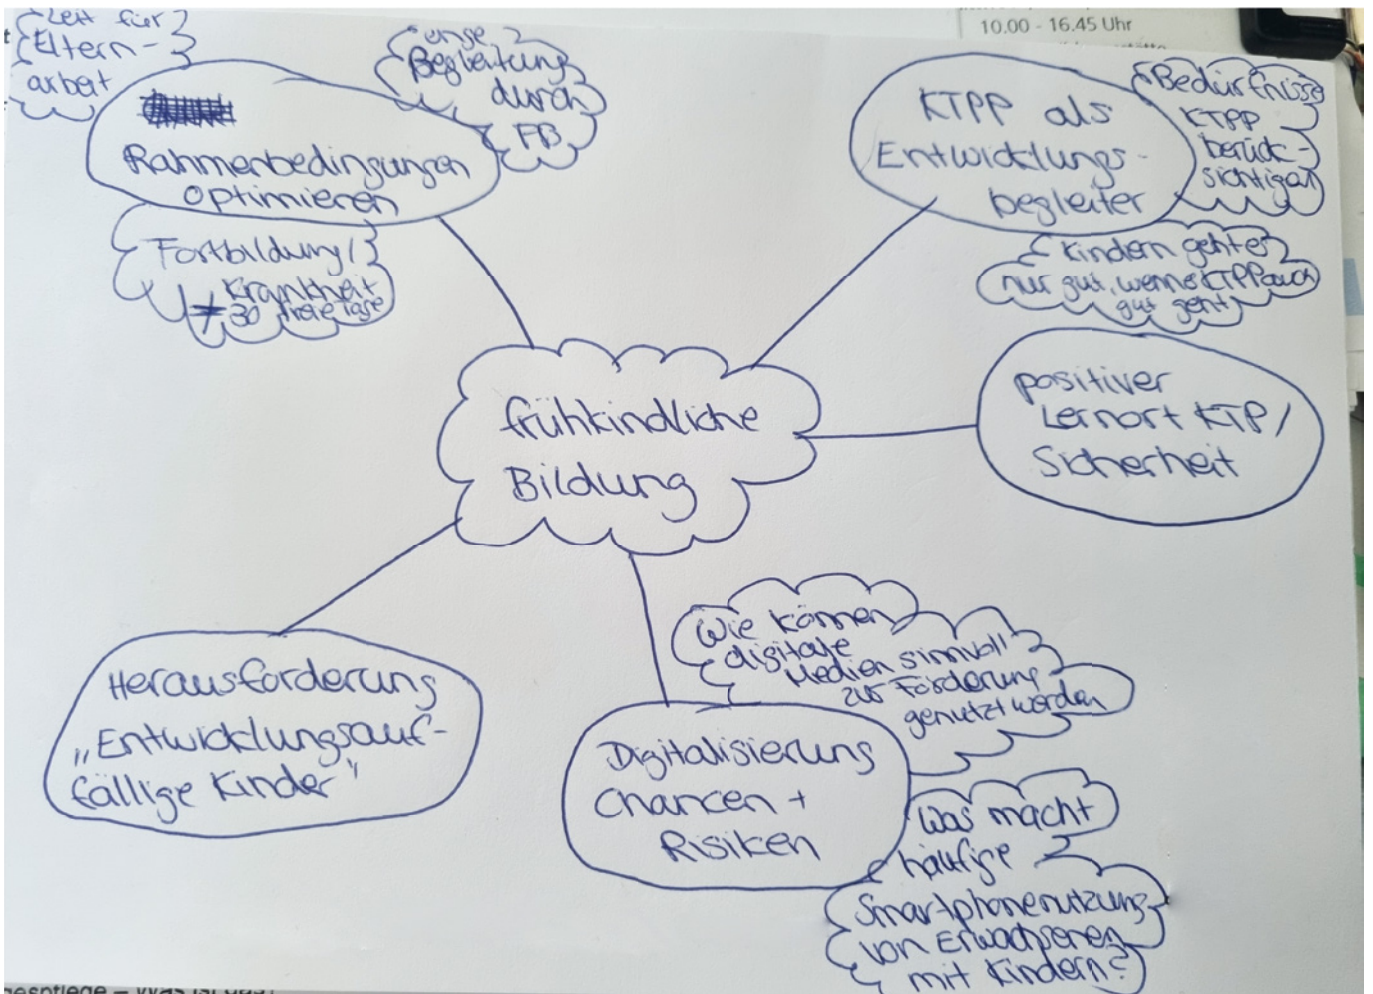 Zeit für
Eltern-
arbeit
enge
Begleitung
durch
FB
Rahmenbedingungen
optimieren
Fortbildung/
Krankheit
≠ 30 freie Tage
10.00 - 16.45 Uhr
KTPP als
Entwicklungs-
begleiter
Bedürfnisse
KTPP
berück-
sichtigen
Kindern geht es
nur gut, wenn es KTPP auch
gut geht
positiver
Lernort KTP/
Sicherheit
frühkindliche
Bildung
Herausforderung
„Entwicklungsauf-
fällige Kinder"
Wie können
digitale
Medien sinnvoll
zur Förderung
genutzt werden
Digitalisierung
Chancen +
Risiken
Was macht
häufige
Smartphonenutzung
von Erwachsenen
mit Kindern?